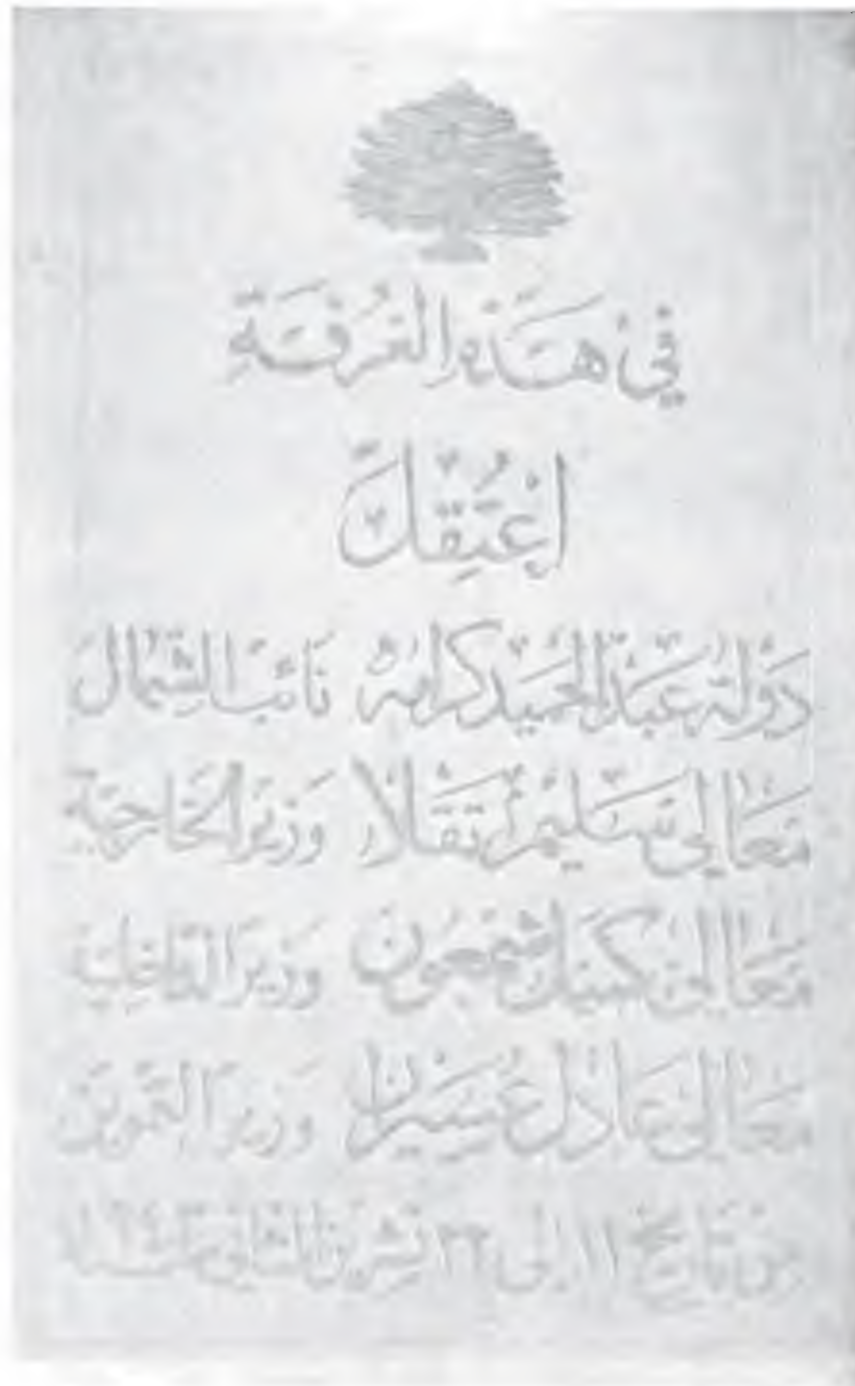 في هَذِهِ الغُرفَةِ
اعْتُقِلَ
دَولة عَبد الحَميد كرامه نَائب الشمال
مَعَالي سَليم تَقلا وَزير الخارجية
مَعَالي كميل شمعون وزير الداخلية
مَعَالي عَادل عُسَيران وزير التموين
من تاريخ ١١ إلى ٢٢ تشرين الثاني سنة